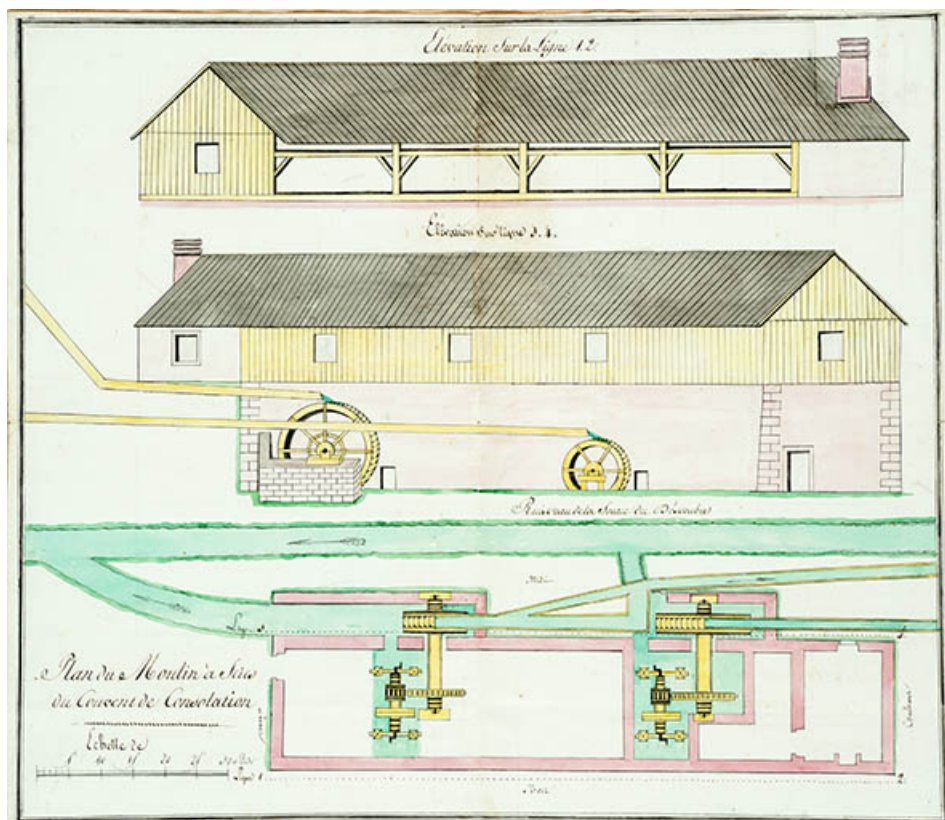 Elévation Sur la Ligne 1.2.
Elévation Sur ligne 3.4.
Ruisseau de la Source du
Midi
Ligne 3.
Plan du Moulin à Scies
du Couvent de Consolation
Echelle de
5 10 15 20 25 30
Ligne 1.
2.